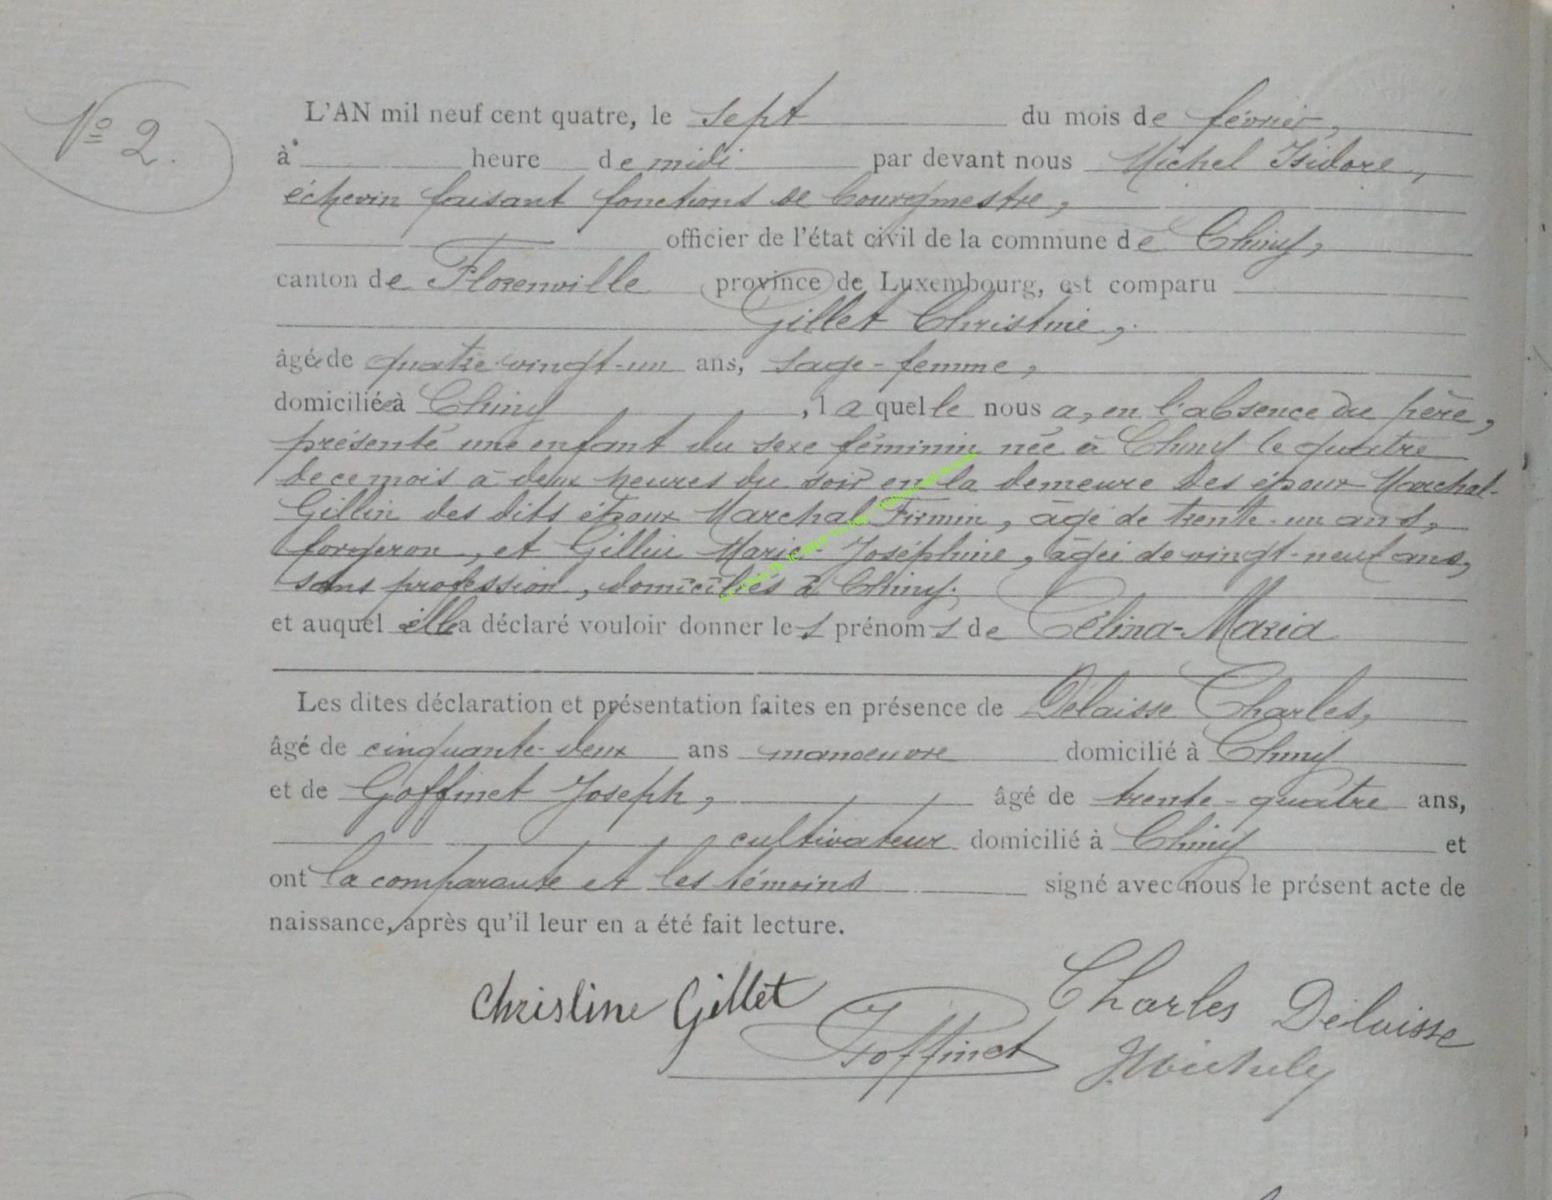 Nº 2.
L'AN mil neuf cent quatre, le sept du mois de février,
à heure de midi par devant nous Michel Isidore,
échevin faisant fonctions de bourgmestre,
officier de l'état civil de la commune de Chiny,
canton de Florenville province de Luxembourg, est comparu
Gillet Christine,
âgée de quatre vingt-un ans, sage-femme,
domiciliée à Chiny, laquelle nous a, en l'absence du père,
présenté une enfant du sexe féminin née à Chiny le quatre
de ce mois à deux heures du soir en la demeure des époux Marchal-
Gillin des dits époux Marchal Firmin, âgé de trente-un ans,
forgeron, et Gillin Marie-Joséphine, âgée de vingt-neuf ans,
sans profession, domiciliés à Chiny.
et auquel elle a déclaré vouloir donner les prénoms de Célina-Maria
Les dites déclaration et présentation faites en présence de Delaisse Charles,
âgé de cinquante-deux ans manoeuvre domicilié à Chiny
et de Goffinet Joseph, âgé de trente-quatre ans,
cultivateur domicilié à Chiny et
ont la comparante et les témoins signé avec nous le présent acte de
naissance, après qu'il leur en a été fait lecture.
Christine Gillet
Charles Delaisse
JGoffinet